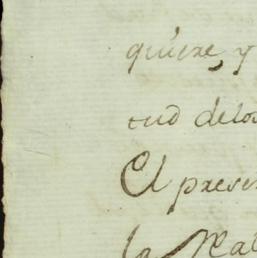 quiere, y
tud delos
El presen
la Mal